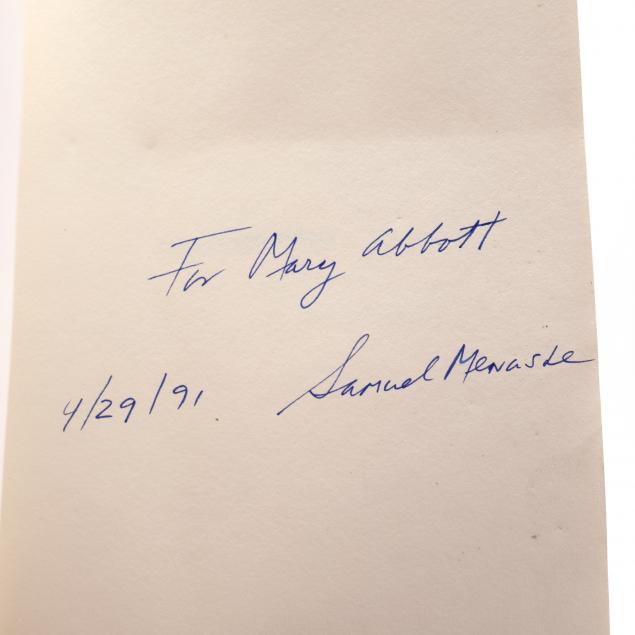 For Mary Abbott
4/29/91 Samuel Menashe